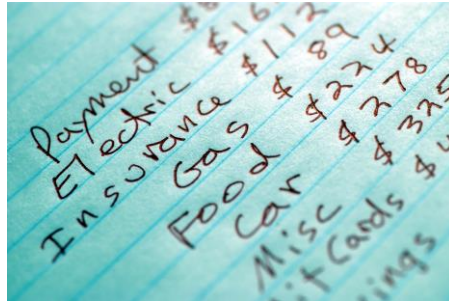 Payment $
Electric $16
Insurance $112
Gas $ 89
Food $224
Car $ 278
Misc $ 325
Cards $4